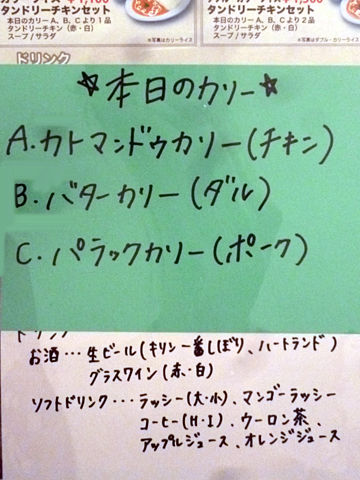 タンドリーチキンセット
本日のカリー A、B、C より1品
タンドリーチキン (赤・白)
スープ / サラダ
※写真はカリーライス
タンドリーチキンセット
本日のカリー A、B、C より2品
タンドリーチキン (赤・白)
スープ / サラダ
※写真はダブル・カリーライス
ドリンク
☆本日のカリー☆
A.カトマンドゥカリー(チキン)
B.バターカリー(ダル)
C.パラックカリー(ポーク)
ドリンク
お酒…生ビール(キリン一番しぼり、ハートランド)
グラスワイン(赤・白)
ソフトドリンク…ラッシー(大・小)、マンゴーラッシー
コーヒー(H・I)、ウーロン茶、
アップルジュース、オレンジジュース